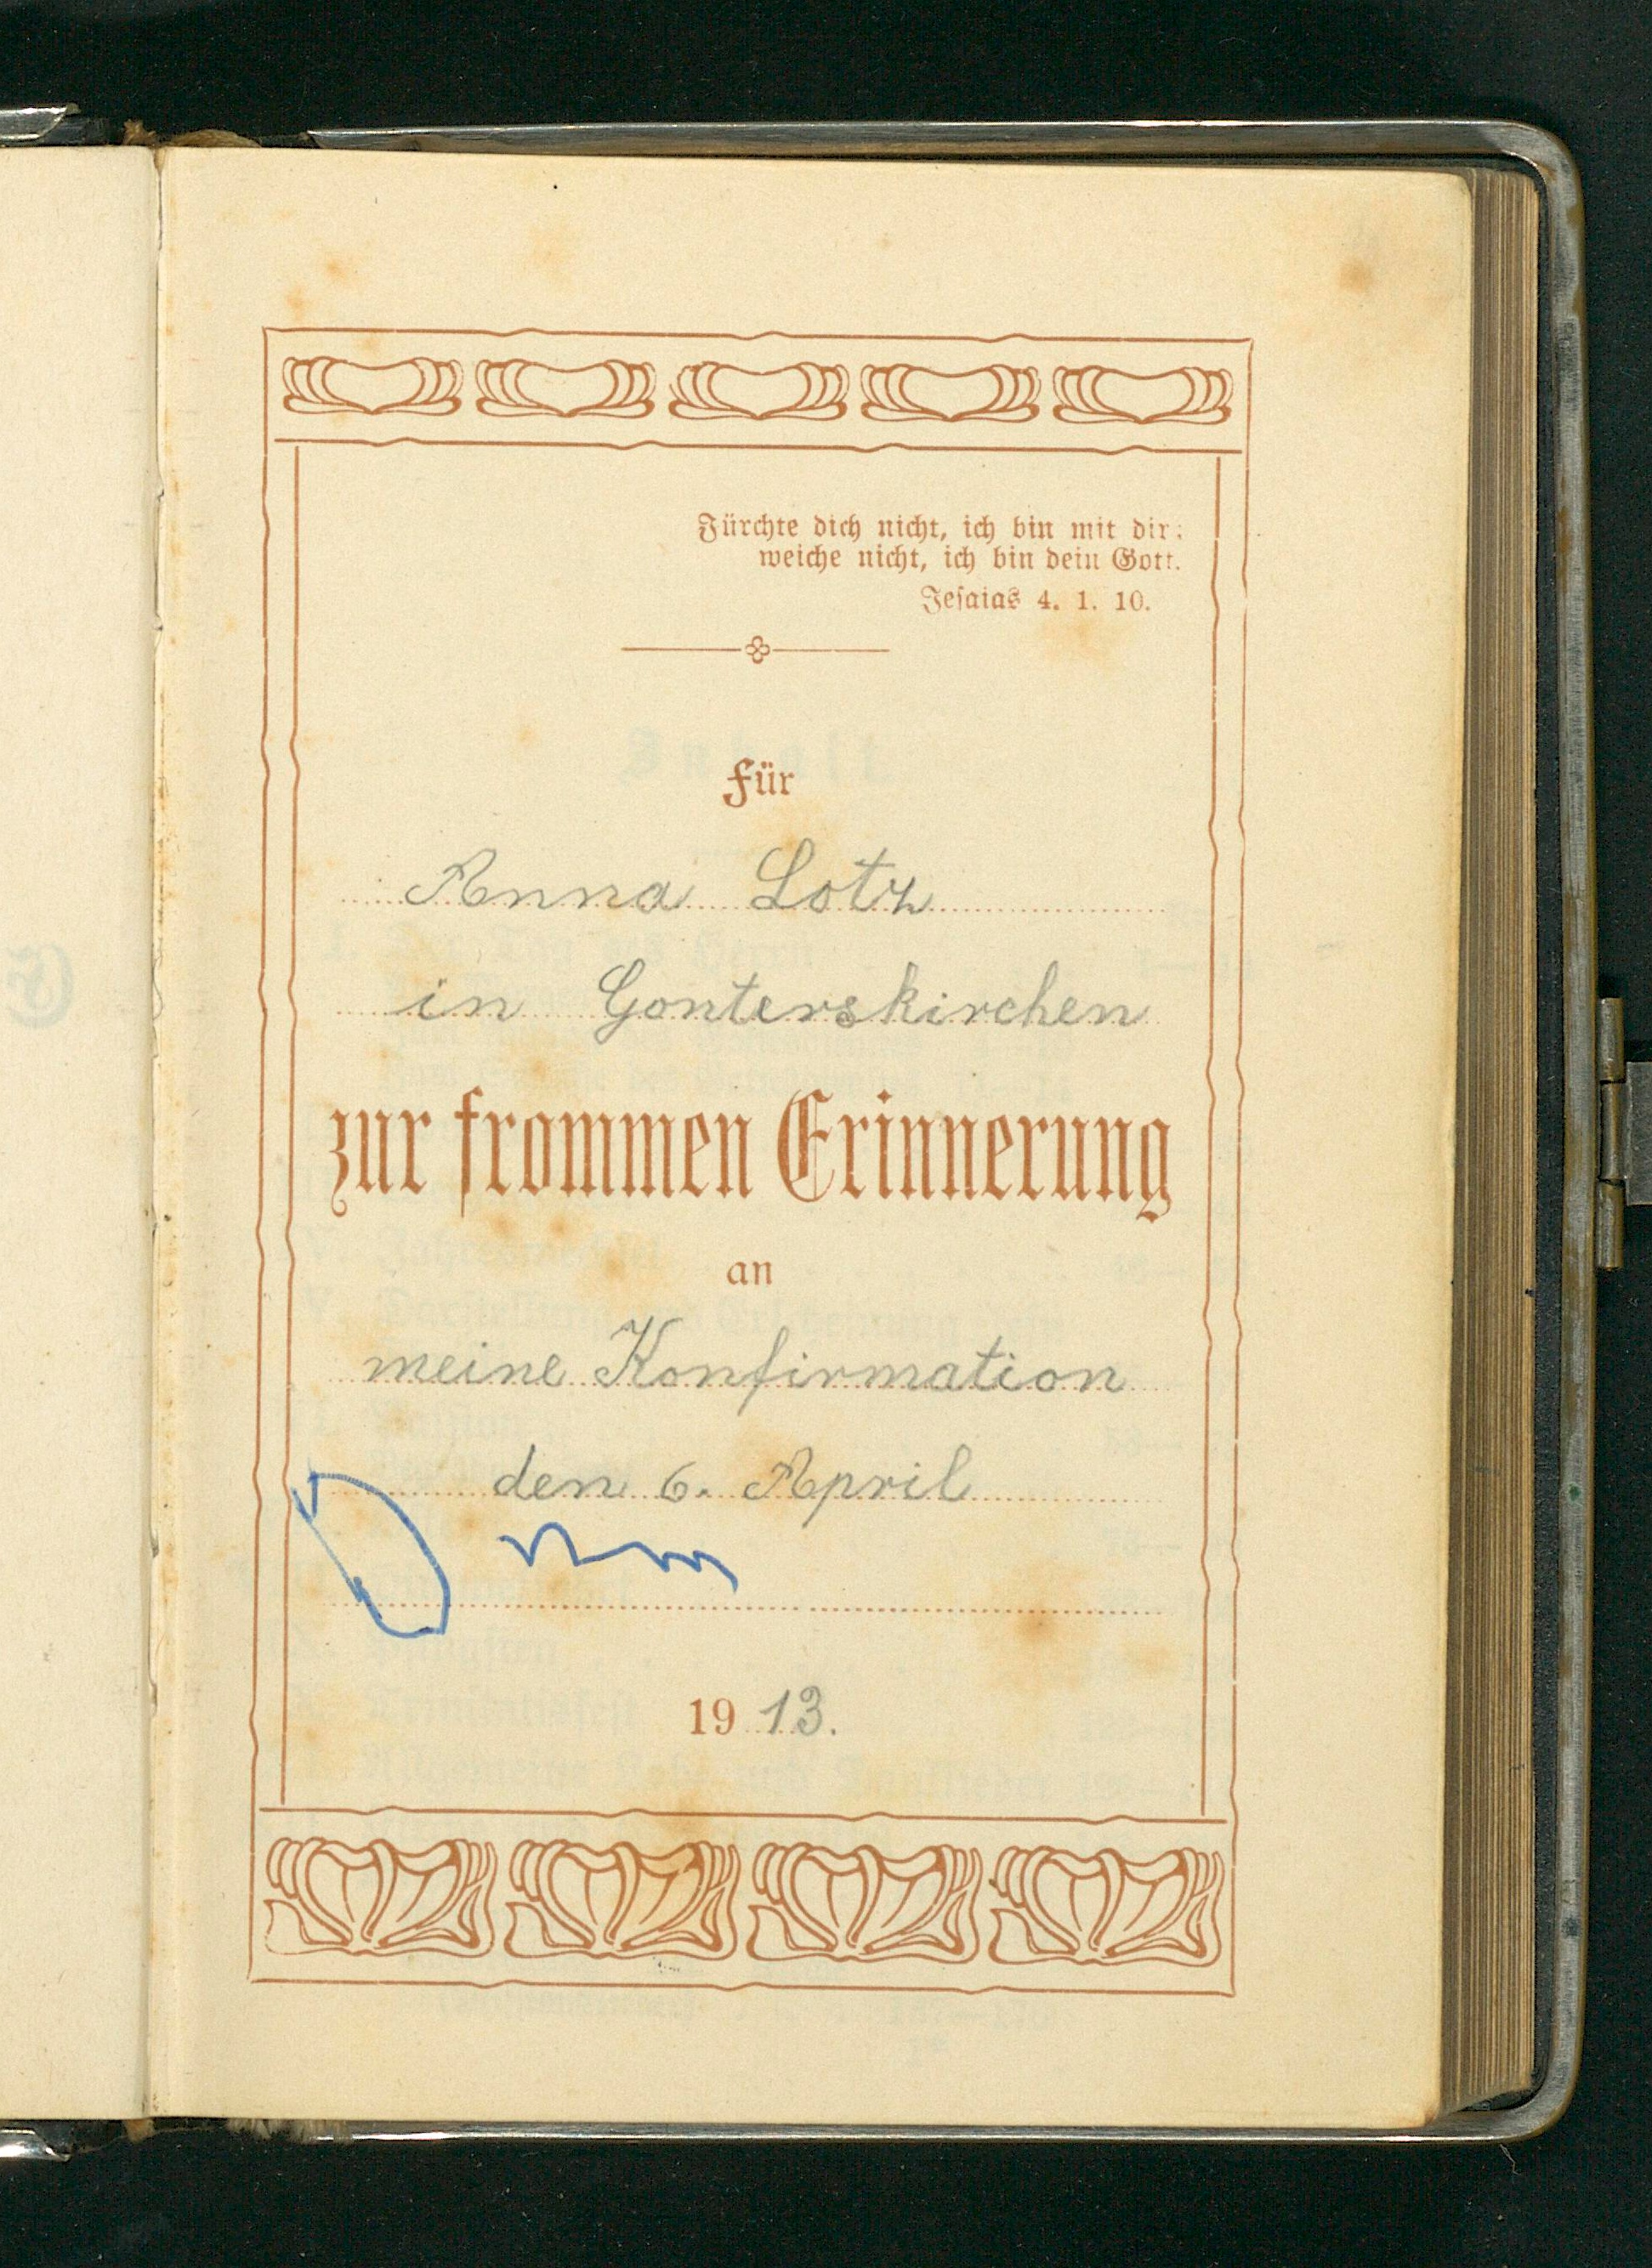 Fürchte dich nicht, ich bin mit dir;
weiche nicht, ich bin dein Gott.
Jesaias 4. 1. 10.
Für
Anna Lotz
in Gonterskirchen
zur frommen Erinnerung
an
meine Konfirmation
den 6. April
1913.